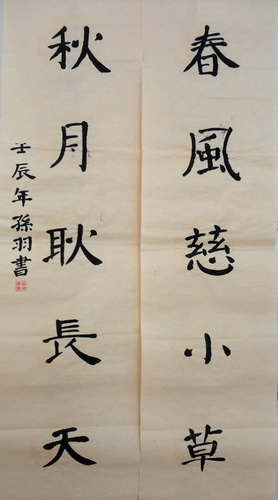 春風慈小草
秋月耿長天
壬辰年孫羽書